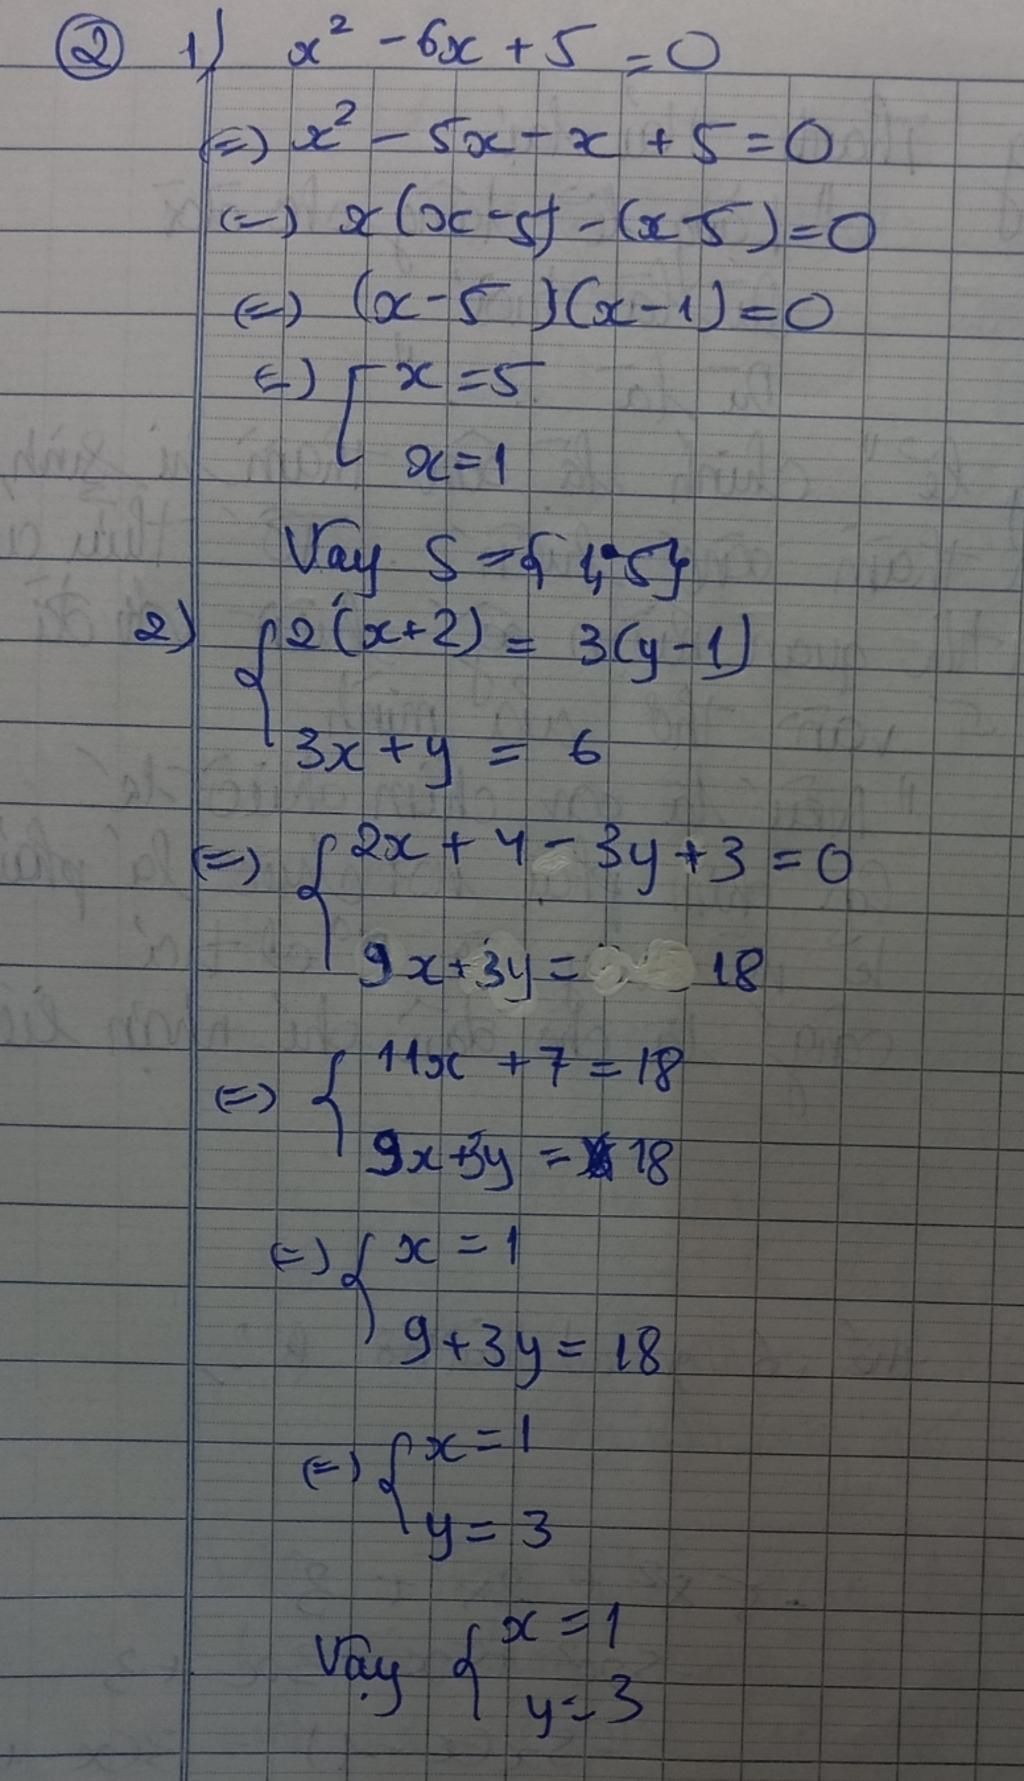 ② 1) x² - 6x + 5 = 0
(=) x² - 5x - x + 5 = 0
(=) x(x-5) - (x-5) = 0
(=) (x-5)(x-1) = 0
(=) [ x = 5
x = 1
Vay S = { 1, 5}
2) { 2(x+2) = 3(y-1)
3x + y = 6
(=) { 2x + 4 - 3y + 3 = 0
9x + 3y = 18
(=) { 11x + 7 = 18
9x + 3y = 18
(=) { x = 1
9 + 3y = 18
(=) { x = 1
y = 3
Vậy { x = 1
y = 3